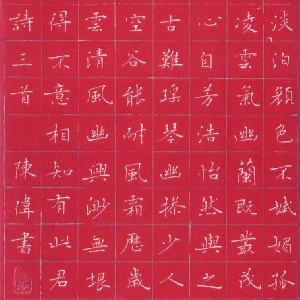 淡泊顏色不嫵媚孤
凌雲氣幽蘭既叢茂
心自芳浩怡然與之
古難瑤琴幽操少人
空谷能耐風霜歷歲
雲清風幽興渺無垠
得不意相知有此君
詩三首 陳偉書